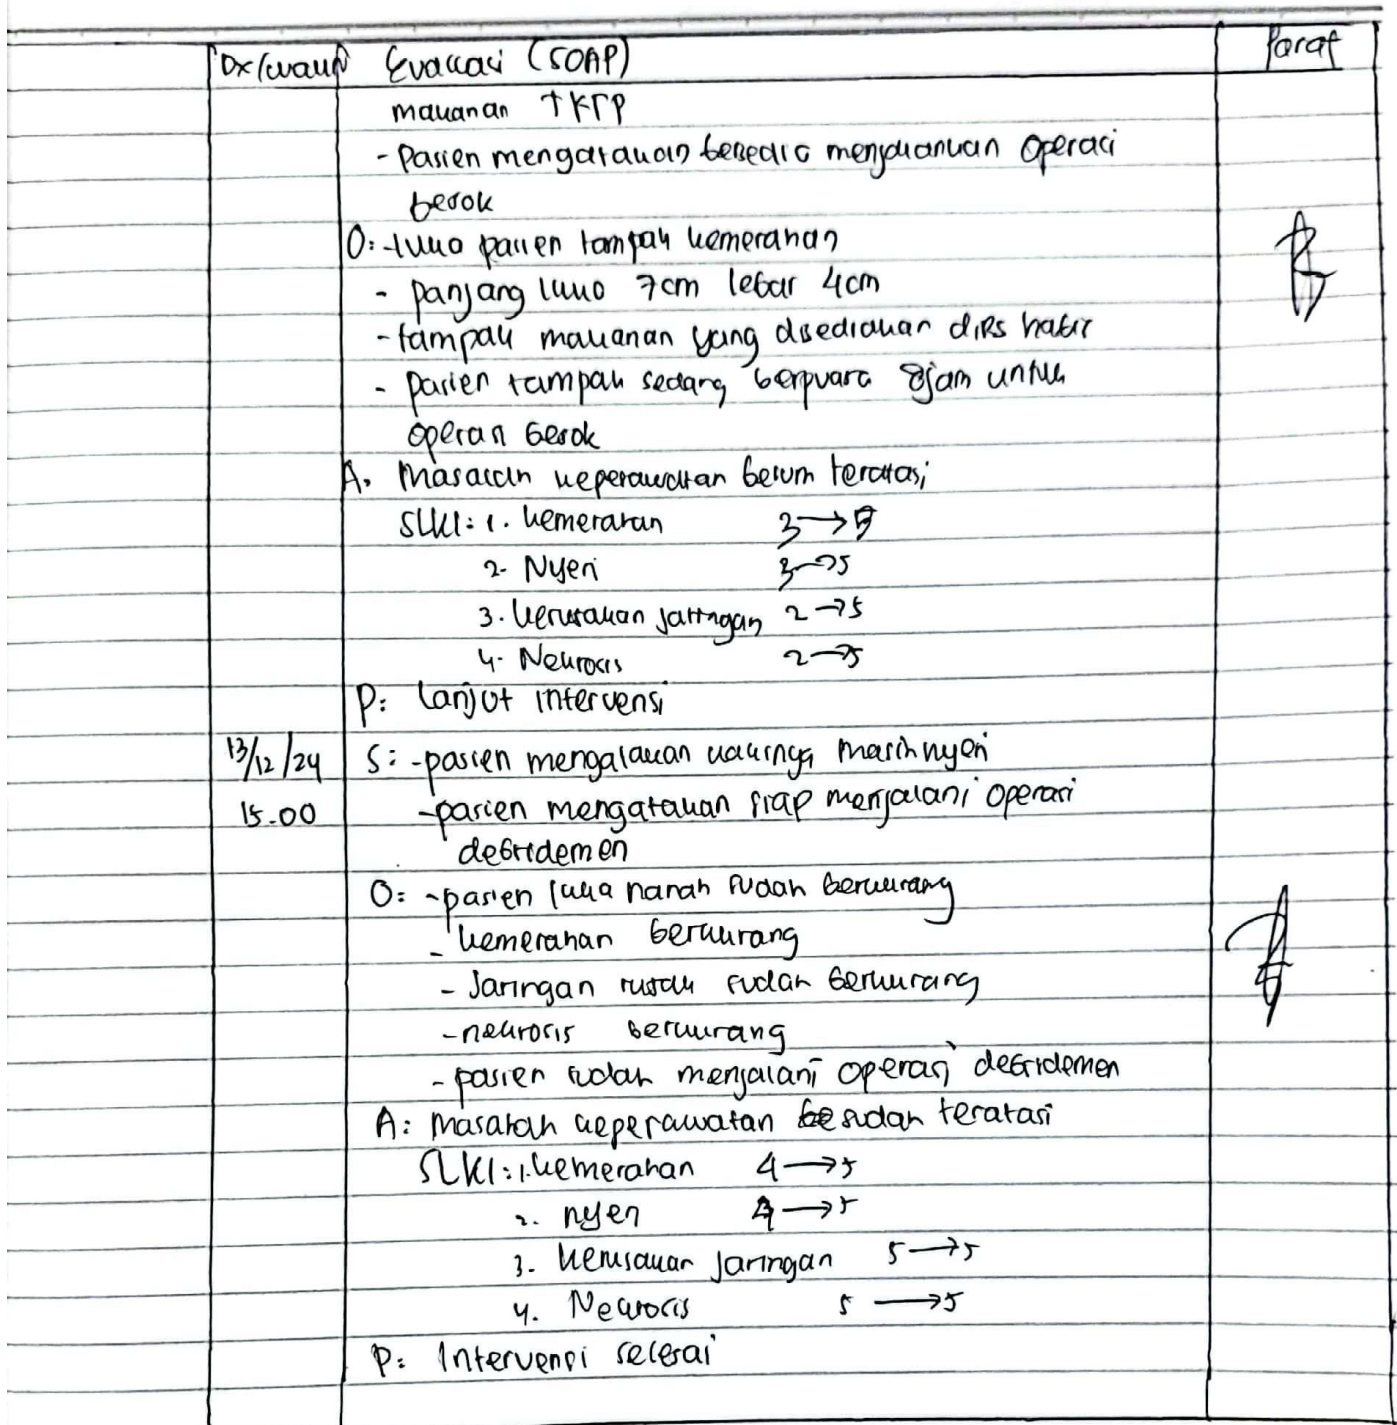 Dx/waktu Evaluasi (SOAP) Paraf
makanan TKTP
- Pasien mengatakan bersedia menjalankan operasi
besok
O: - luka pasien tampak kemerahan
- panjang luka 7cm lebar 4cm
- tampak makanan yang disediakan diRS habis
- pasien tampak sedang berpuasa 8jam untuk
operan besok
A. Masalah keperawatan belum teratasi
SLKI: 1. kemerahan 3→5
2. Nyeri 3→5
3. kerusakan jaringan 2→5
4. Nekrosis 2→5
P: lanjut intervensi
13/12/24 S: - pasien mengatakan kakinya masih nyeri
15.00 - pasien mengatakan siap menjalani operasi
debridemen
O: - pasien luka nanah sudah berkurang
- kemerahan berkurang
- Jaringan rusak sudah berkurang
- nekrosis berkurang
- pasien sudah menjalani operasi debridemen
A: Masalah keperawatan sudah teratasi
SLKI: 1. kemerahan 4→5
2. nyeri 4→5
3. kerusakan jaringan 5→5
4. Nekrosis 5→5
P: Intervensi selesai